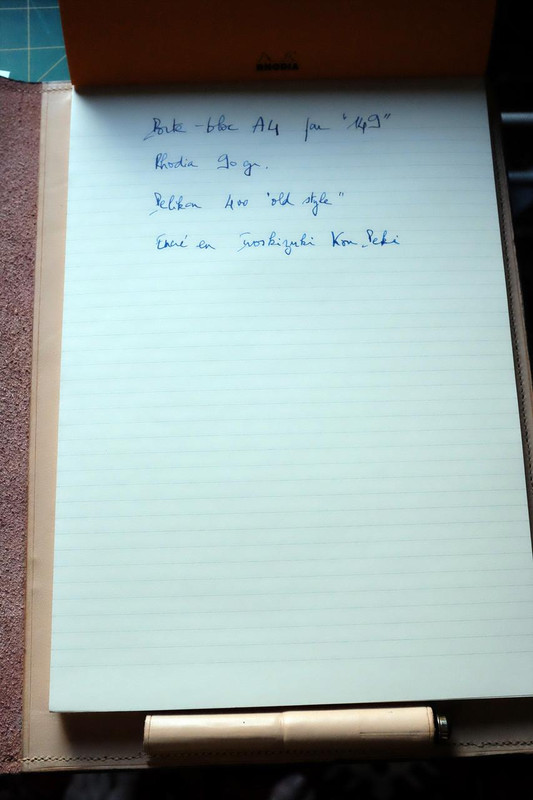 RHODIA
Porte-bloc A4 par "149"
Rhodia 90 gr.
Pelikan 400 "old style"
Encré en Iroshizuku Kon Peki